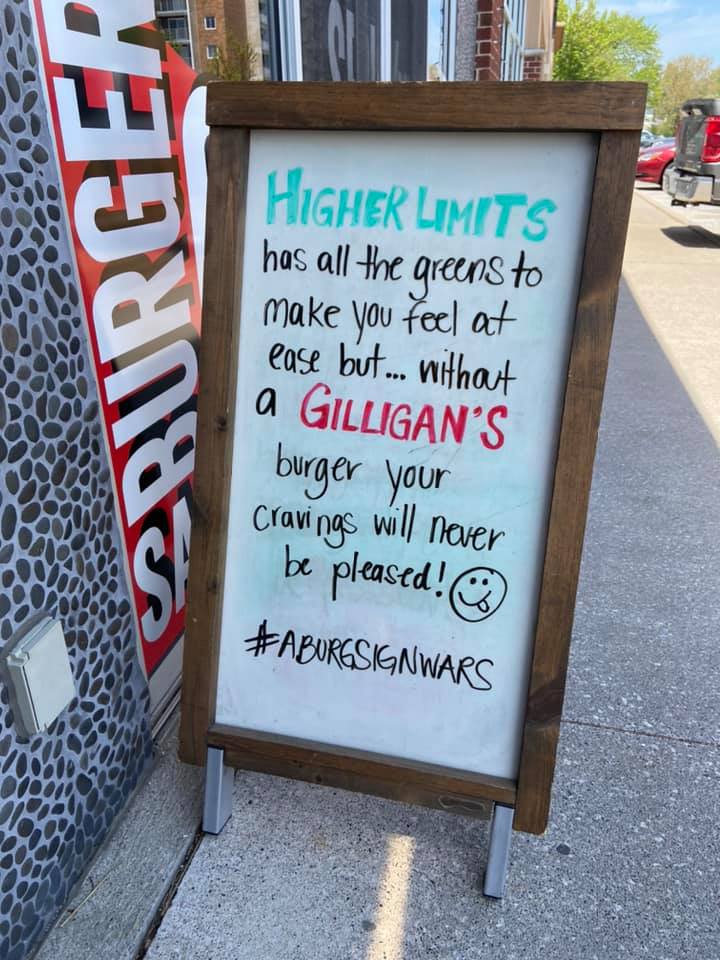 HIGHER LIMITS
has all the greens to
make you feel at
ease but... without
a GILLIGAN'S
burger your
cravings will never
be pleased!
#ABURGSIGNWARS
BURGER